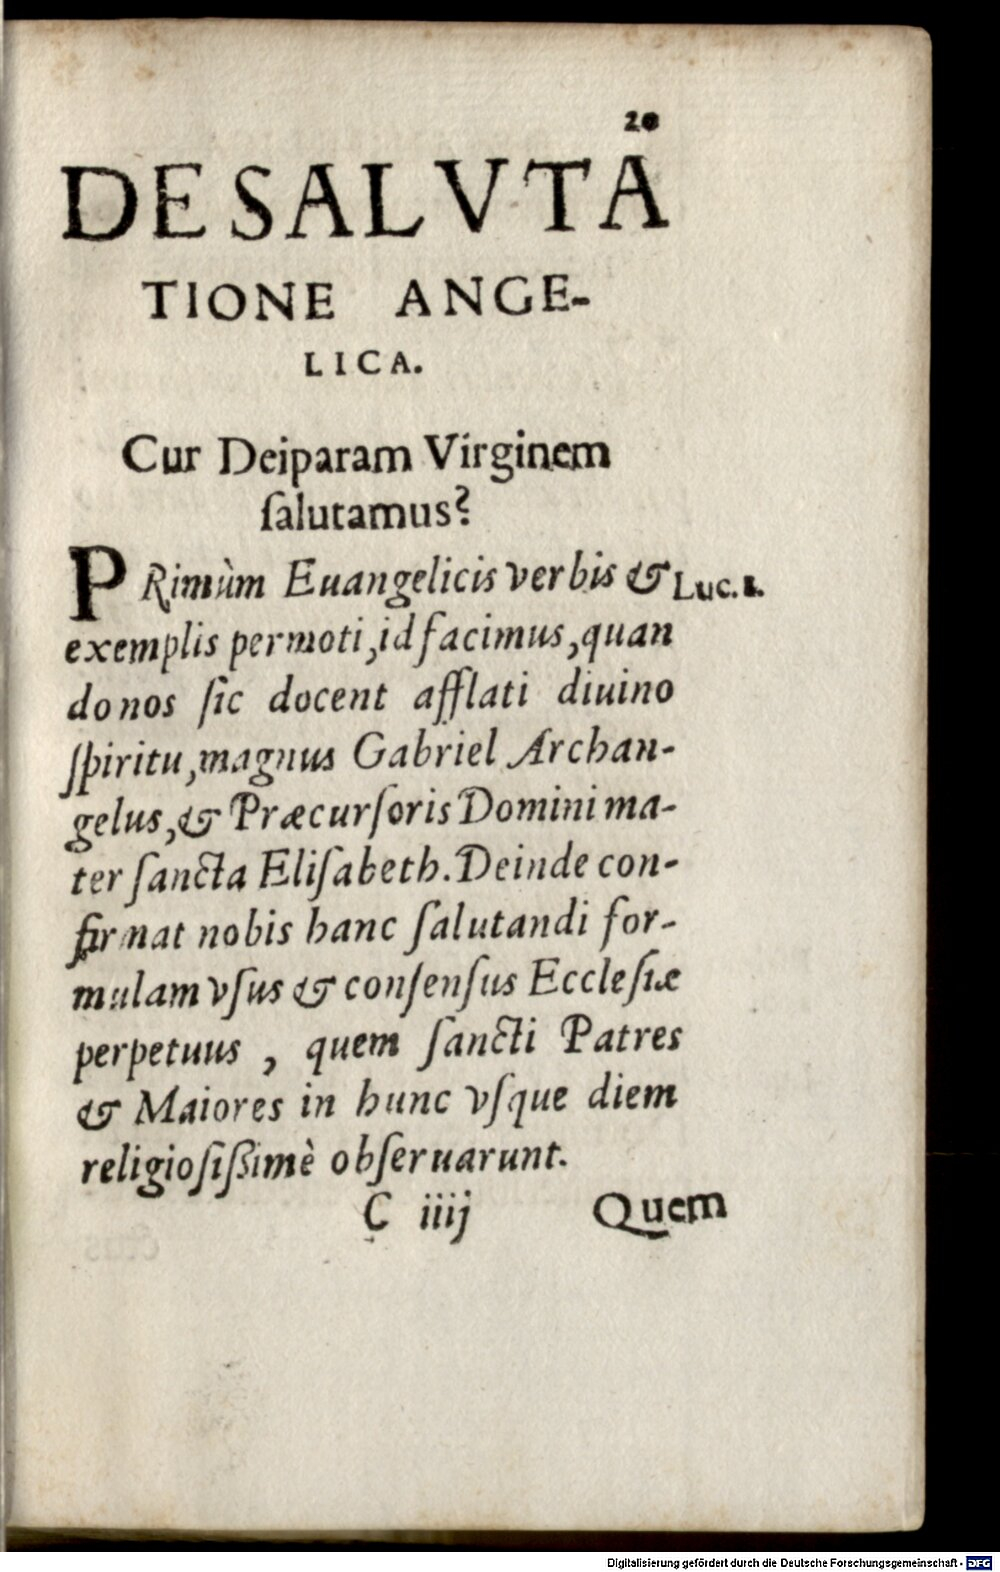 20
DE SALVTA
TIONE ANGE-
LICA.
Cur Deiparam Virginem
ſalutamus?
PRimùm Euangelicis verbis & Luc. 1.
exemplis permoti, id facimus, quan
do nos ſic docent afflati diuino
ſpiritu, magnus Gabriel Archan-
gelus, & Præcurſoris Domini ma-
ter ſancta Eliſabeth. Deinde con-
firmat nobis hanc ſalutandi for-
mulam vſus & conſenſus Eccleſiæ
perpetuus , quem ſancti Patres
& Maiores in hunc vſque diem
religioſiſſimè obſeruarunt.
C iiij Quem
Digitalisierung gefördert durch die Deutsche Forschungsgemeinschaft - DFG